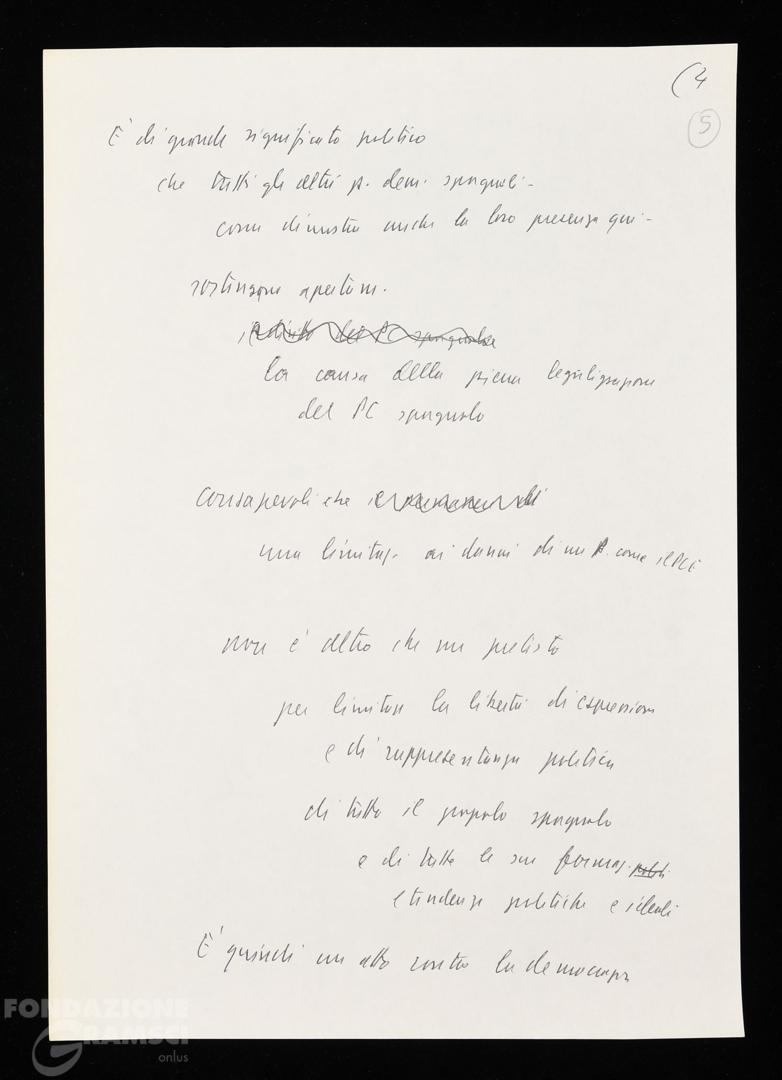 (4
5
È di grande significato politico
che tutti gli altri p. dem. spagnoli -
come dimostra anche la loro presenza qui -
sostengono apertam.
il diritto del PC spagnolo
la causa della piena legalizzazione
del PC spagnolo
consapevoli che
una limitaz. ai danni di un P. come il PCE
non è altro che un pretesto
per limitare la libertà di espressione
e di rappresentanza politica
di tutto il popolo spagnolo
e di tutte le sue formaz. polit.
e tendenze politiche e ideali
È quindi un atto contro la democrazia
FONDAZIONE
GRAMSCI
onlus